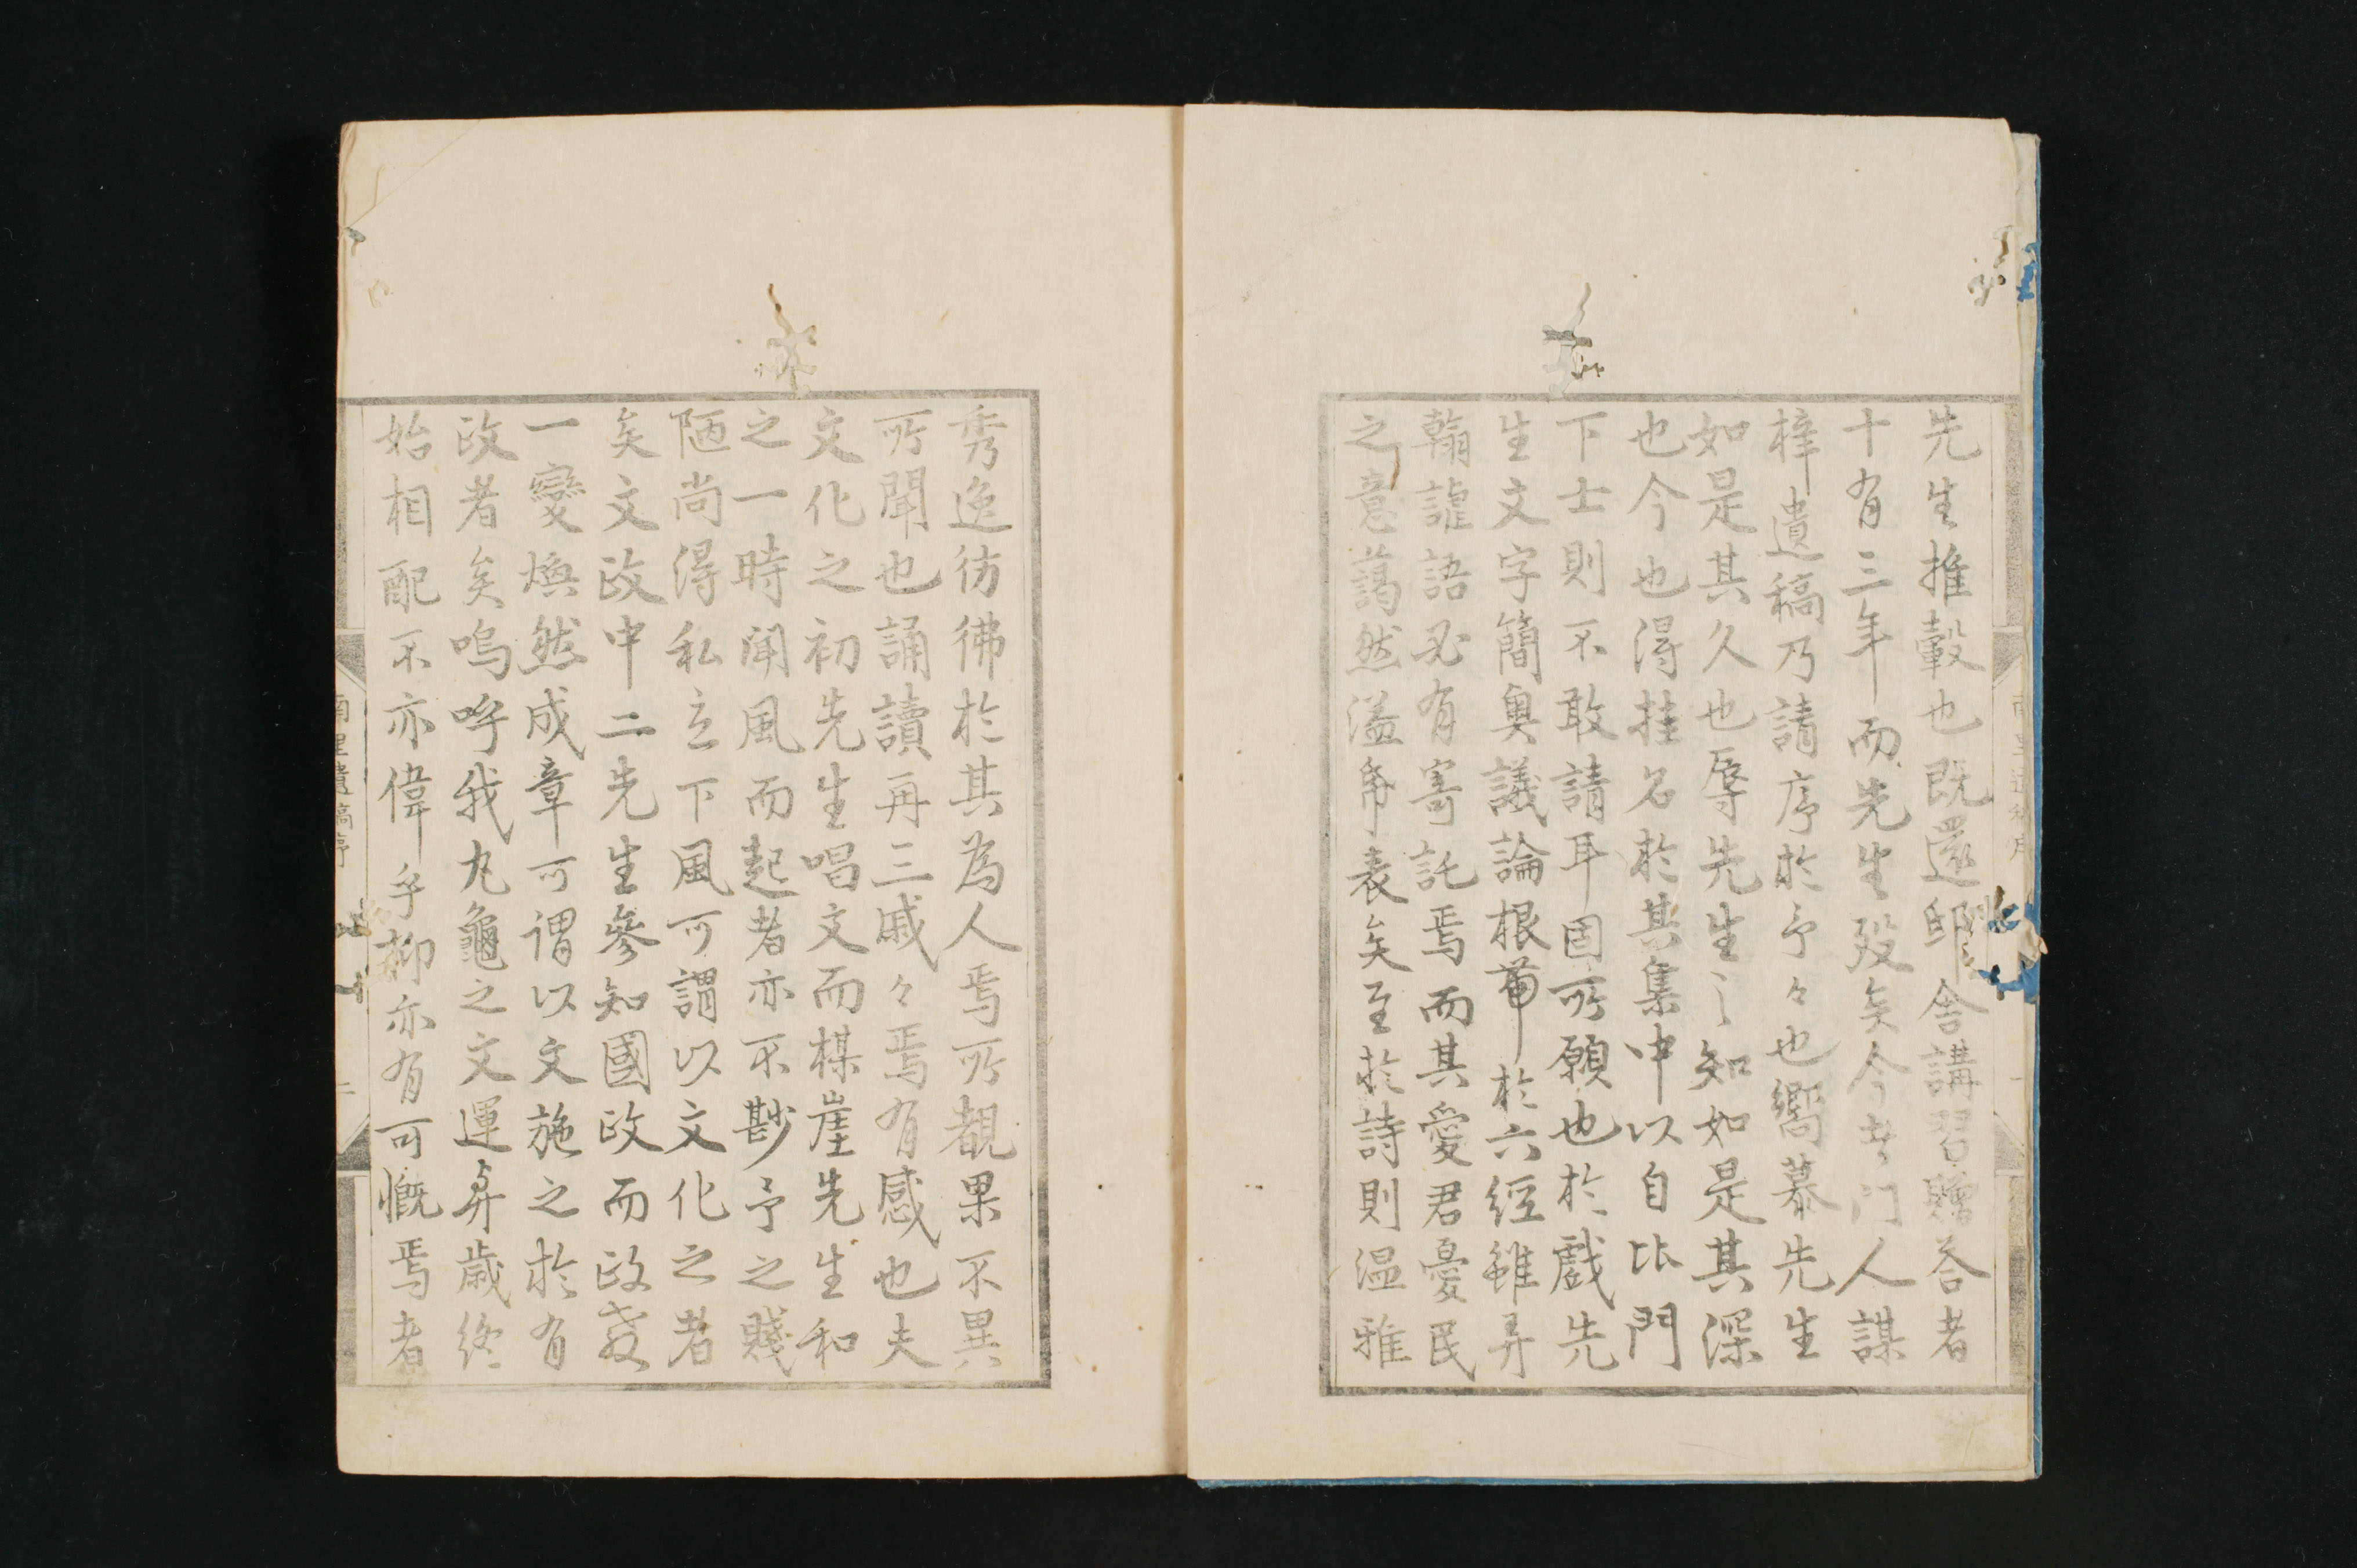 先生推轂也既還邸舍講習贈荅者
十有三年而先生歿矣今者門人謀
梓遺稿乃請序於予々也嚮慕先生
如是其久也辱先生之知如是其深
也今也得挂名於其集中以自比門
下士則不敢請耳固所願也於戲先
生文字簡奧議論根蔕於六經雖弄
翰謔語必有寄託焉而其愛君憂民
之意藹然溢帋表矣至於詩則溫雅
秀逸彷彿於其為人焉所覩果不異
所聞也誦讀再三戚々焉有感也夫
文化之初先生唱文而楳崖先生和
之一時聞風而起者亦不尠予之賤
陋尚得私立下風可謂以文化之者
矣文政中二先生參知國政而政教
一變煥然成章可謂以文施之於有
政者矣嗚呼我丸龜之文運與歲終
始相配不亦偉乎抑亦有可慨焉者
南里遺稿序
二